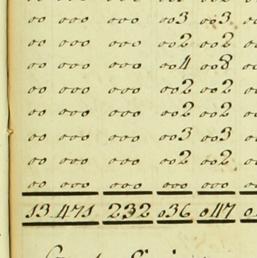 oo ooo ooo oo3 oo3
oo ooo ooo oo2 oo2
oo ooo ooo oo4 oo8
oo ooo ooo oo2 oo2
oo ooo ooo oo2 oo2
oo ooo ooo oo3 oo3
oo ooo ooo oo2 oo2
oo ooo ooo ooo ooo
13 471 232 o36 o47